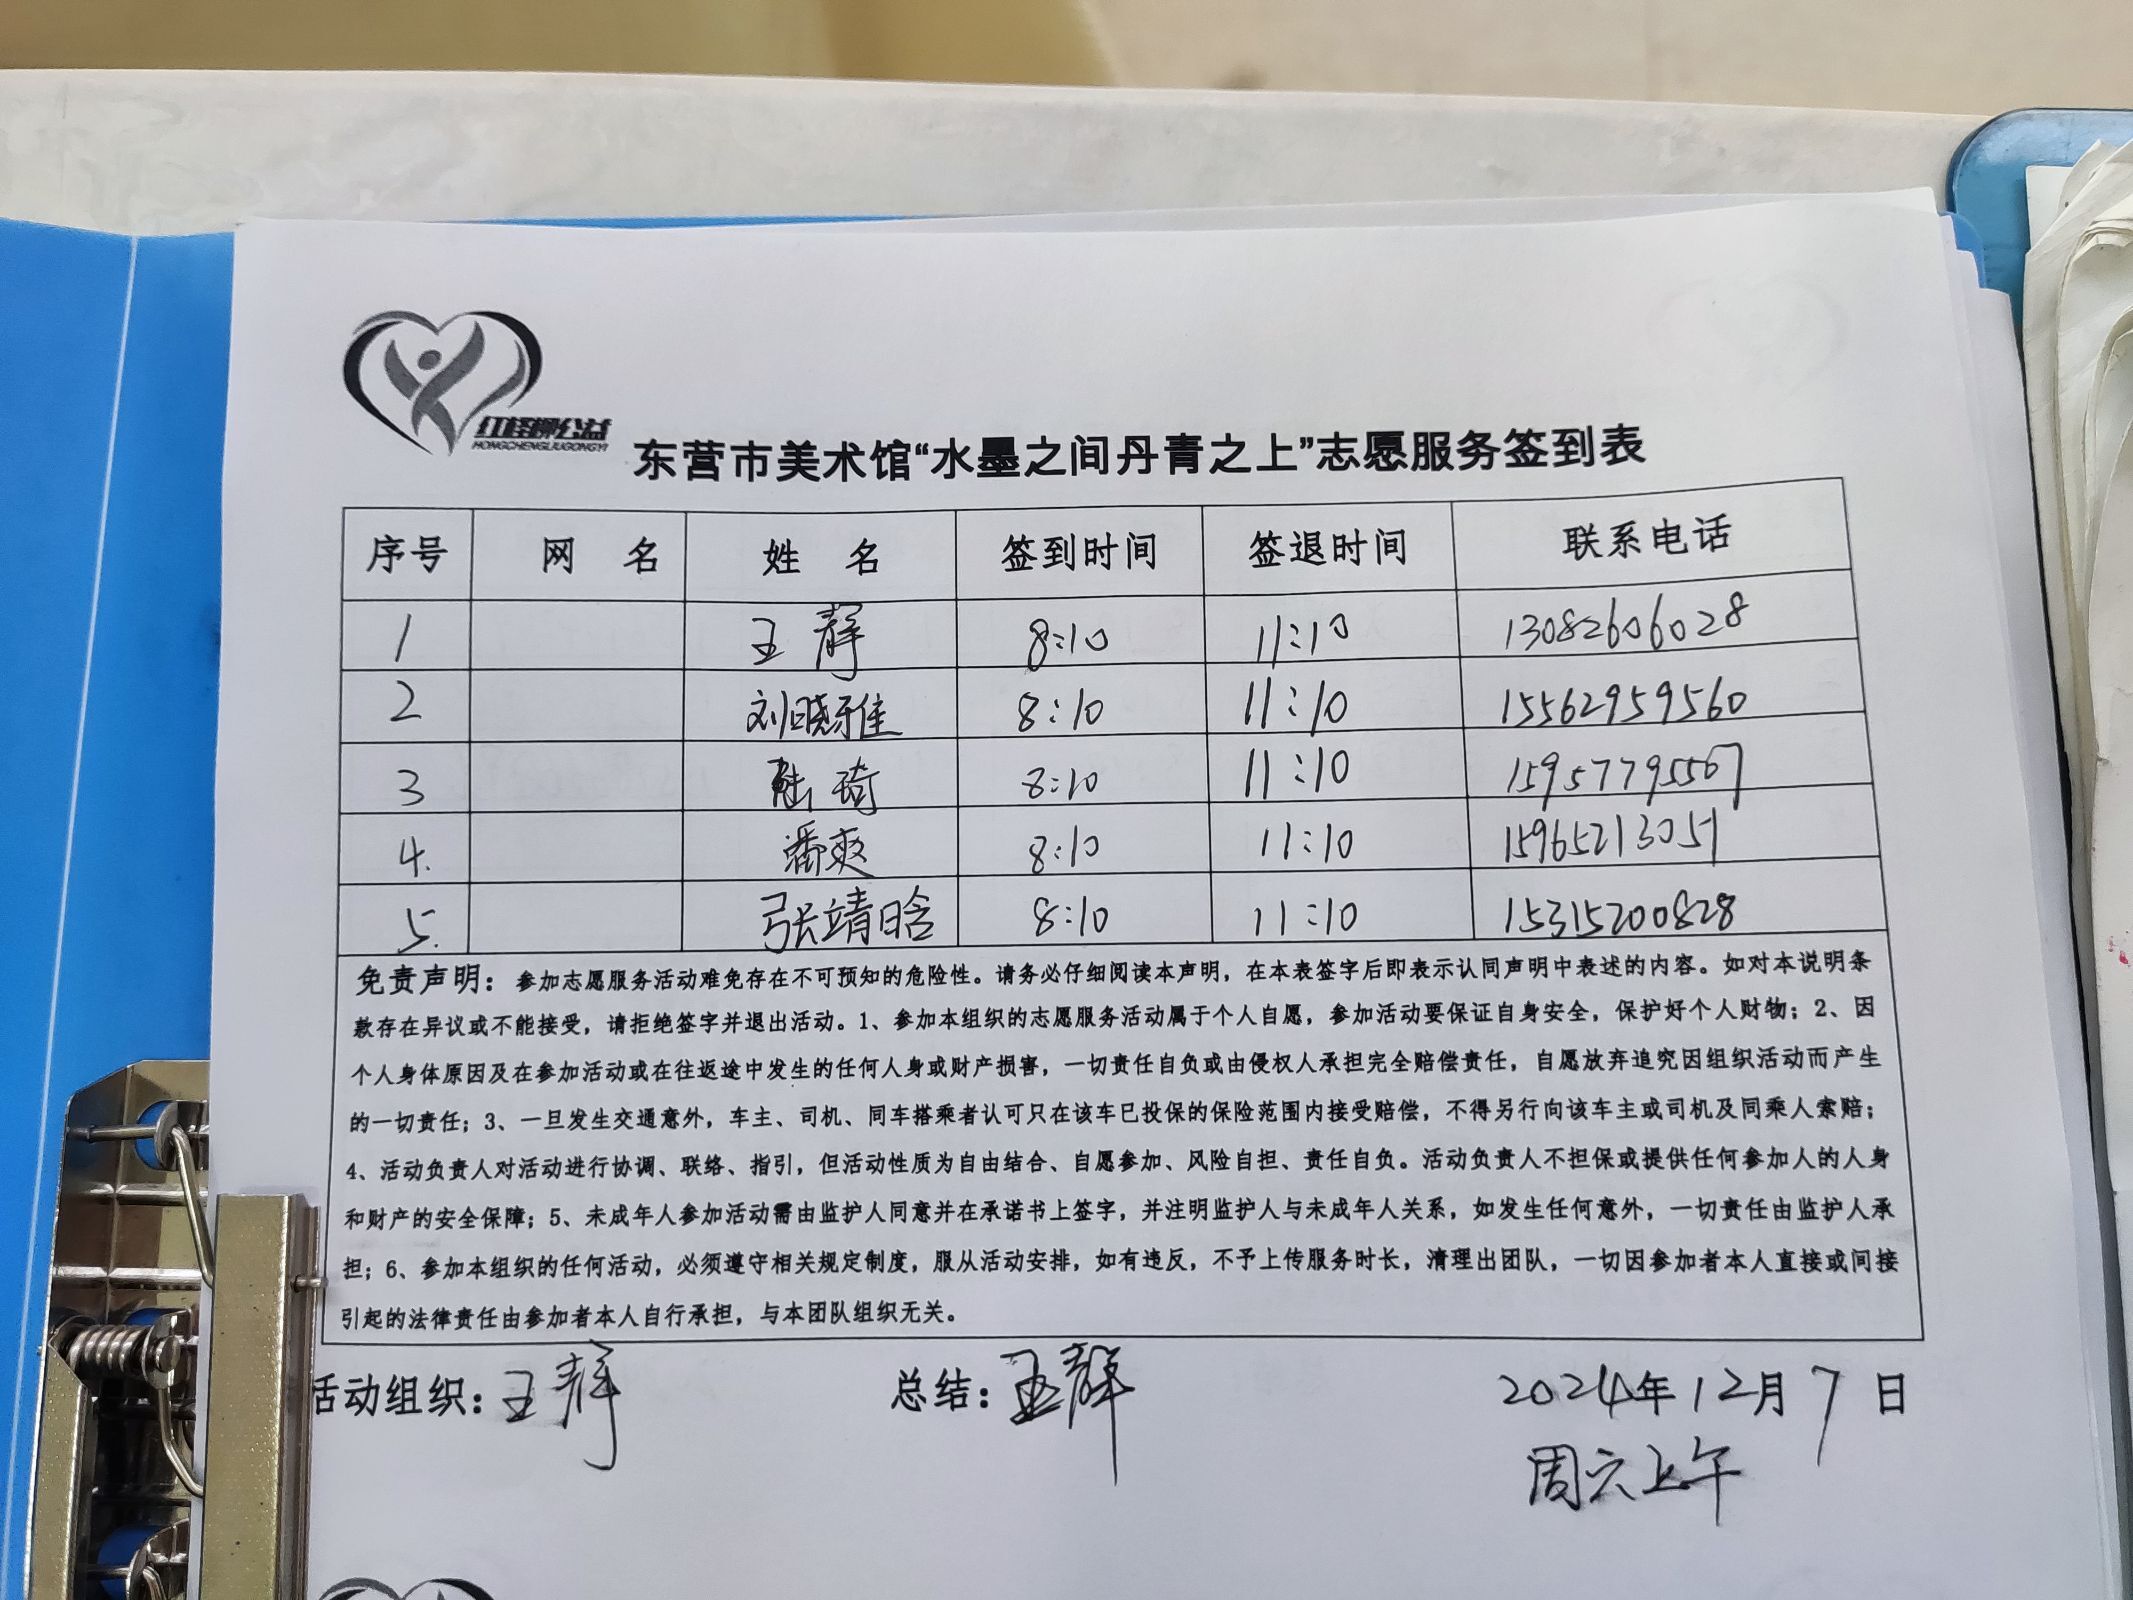 红柽柳公益
HONGCHENGLIUGONGYI
东营市美术馆“水墨之间丹青之上”志愿服务签到表
序号 网 名 姓 名 签到时间 签退时间 联系电话
1 王静 8:10 11:10 13082606028
2 刘晓雅 8:10 11:10 15562959560
3 陆琦 8:10 11:10 15957795567
4. 潘爽 8:10 11:10 15965213051
5. 张靖晗 8:10 11:10 15315200828
免责声明：参加志愿服务活动难免存在不可预知的危险性。请务必仔细阅读本声明，在本表签字后即表示认同声明中表述的内容。如对本说明条
款存在异议或不能接受，请拒绝签字并退出活动。1、参加本组织的志愿服务活动属于个人自愿，参加活动要保证自身安全，保护好个人财物；2、因
个人身体原因及在参加活动或在往返途中发生的任何人身或财产损害，一切责任自负或由侵权人承担完全赔偿责任，自愿放弃追究因组织活动而产生
的一切责任；3、一旦发生交通意外，车主、司机、同车搭乘者认可只在该车已投保的保险范围内接受赔偿，不得另行向该车主或司机及同乘人索赔；
4、活动负责人对活动进行协调、联络、指引，但活动性质为自由结合、自愿参加、风险自担、责任自负。活动负责人不担保或提供任何参加人的人身
和财产的安全保障；5、未成年人参加活动需由监护人同意并在承诺书上签字，并注明监护人与未成年人关系，如发生任何意外，一切责任由监护人承
担；6、参加本组织的任何活动，必须遵守相关规定制度，服从活动安排，如有违反，不予上传服务时长，清理出团队，一切因参加者本人直接或间接
引起的法律责任由参加者本人自行承担，与本团队组织无关。
活动组织：王静 总结：王静 2024年12月7日
周六上午